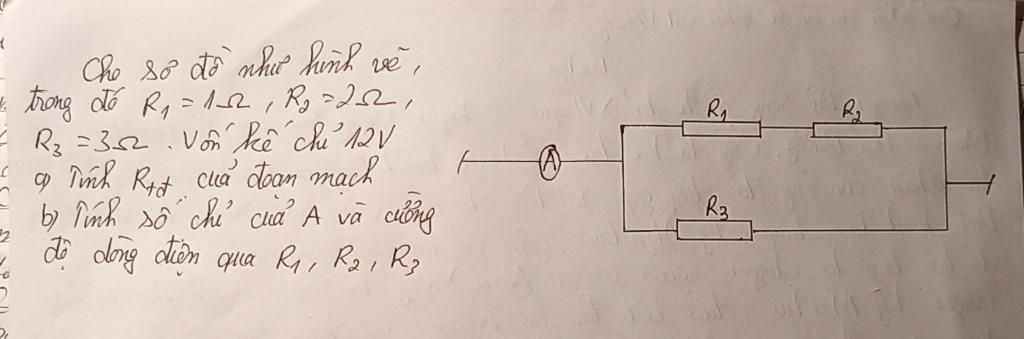 Cho sơ đồ như hình vẽ,
trong đó R1 = 1Ω, R2 = 2Ω,
R3 = 3Ω. Vôn kế chỉ 12V
a) Tính Rtđ của đoạn mạch
b) Tính số chỉ của A và cường
độ dòng điện qua R1, R2, R3
R1
R2
A
R3